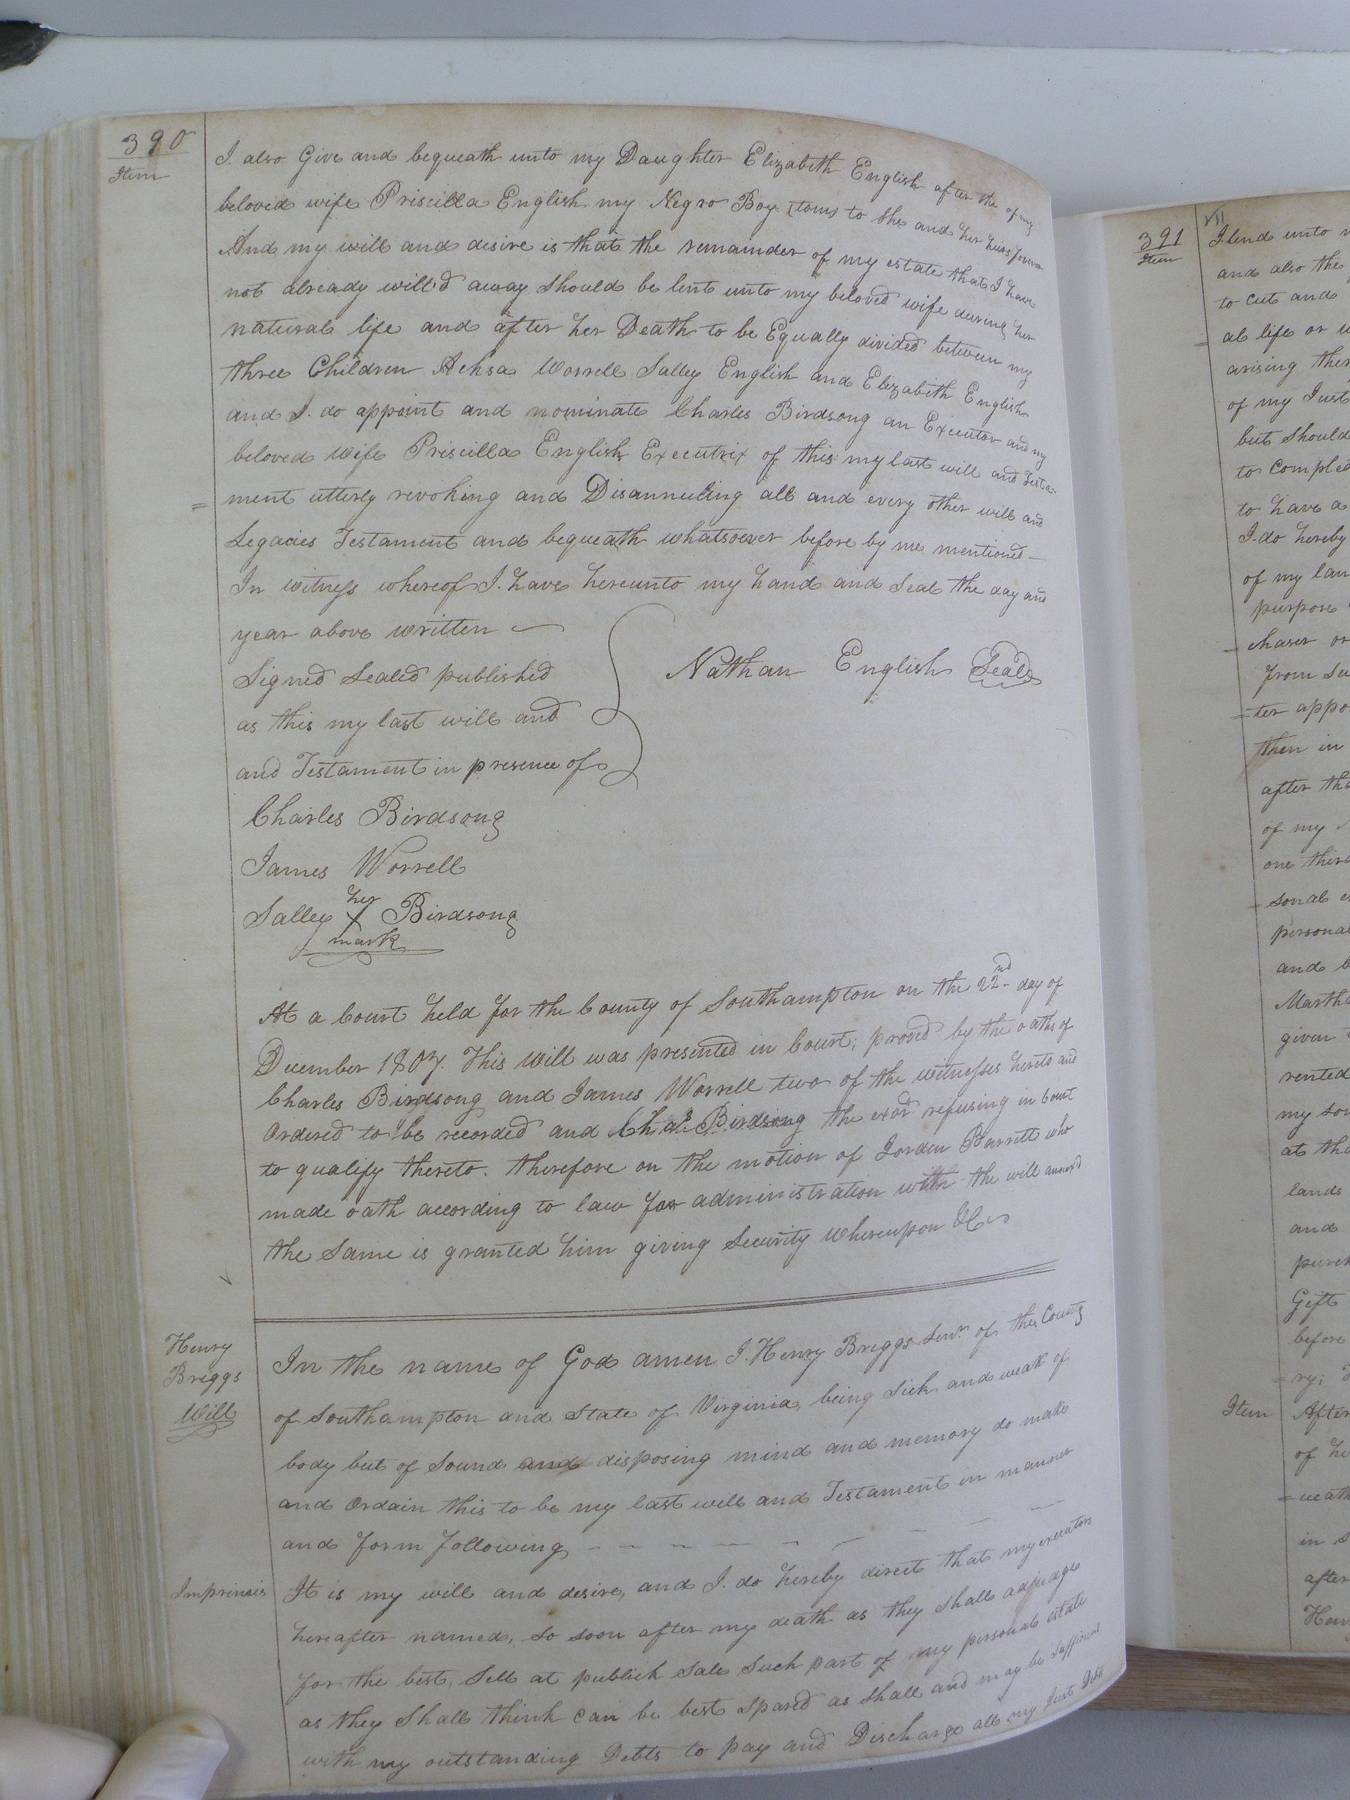 390
Item
I also Give and bequeath unto my Daughter Elizabeth English after the of my
beloved wife Priscilla English my Negro Boy to she and her heirs
And my will and desire is that the remainder of my estate that I have
not already will'd away should be lent unto my beloved wife during her
natural life and after her Death to be Equally divided between my
three Children Achsa Worrell Salley English and Elizabeth English
and I. do appoint and nominate Charles Birdsong an Executor and my
beloved wife Priscilla English Executrix of this my last will and Testa-
= ment utterly revoking and Disannuling all and every other will and
Legacies Testament and bequeath whatsoever before by me mentioned —
In witness whereof I. have hereunto my hand and Seal the day and
year above written
Signed Sealed published
as this my last will and
and Testament in presence of
Nathan English Seal
Charles Birdsong
James Worrell
her
Salley X Birdsong
mark
At a Court held for the County of Southampton on the 22nd day of
December 1807. This will was presented in Court; proved by the oaths of
Charles Birdsong and James Worrell two of the witnesses hereto and
Ordered to be recorded and Chas. Birdsong the exor. refusing in Court
to qualify thereto. therefore on the motion of Jorden Barrett who
made oath according to law for administration with the will annexd
the Same is granted him giving Security whereupon &c
Henry
Briggs
Will
In the name of God amen I. Henry Briggs Senr. of the County
of Southampton and State of Virginia, being Sick and weak of
body but of Sound and disposing mind and memory do make
and Ordain this to be my last will and Testament in manner
and form following
Imprimis
It is my will and desire, and I. do hereby direct that my executors
hereafter named, So soon after my death as they Shall adjudge
for the best, Sell at publick Sale Such part of my personal estate
as they Shall think can be best Spared as Shall and may be Sufficient
with my outstanding Debts to pay and Discharge all my Just Debts
391
Item
VII
I lend unto
and also the
to cut and
al life or
arising
of my Just
but Should
to
to have a
I. do hereby
of my
purpose
- chaser or
from
= ter
then in
after
of my
one third
- sonal
personal
and
Martha
given
rented
my
at the
lands
and
Gift
before
= ry;
Item
After
of
in
after